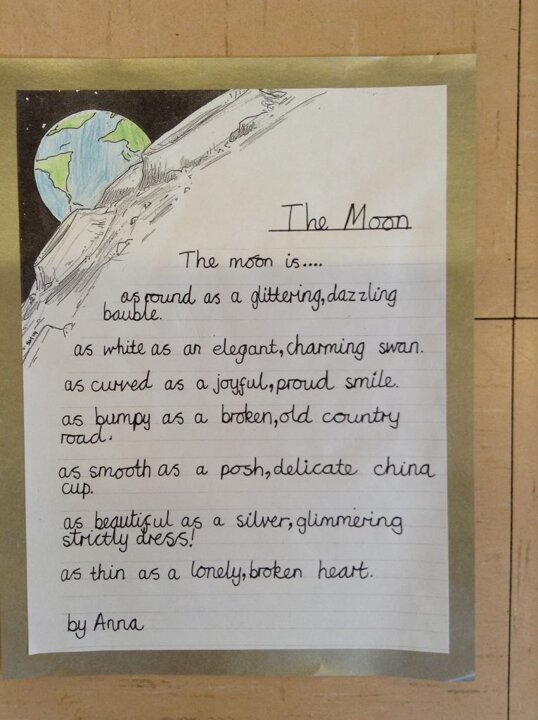 The Moon
The moon is....
as round as a glittering,dazzling
bauble.
as white as an elegant,charming swan.
as curved as a joyful,proud smile.
as bumpy as a broken,old country
road.
as smooth as a posh,delicate china
cup.
as beautiful as a silver,glimmering
strictly dress!
as thin as a lonely,broken heart.
by Anna